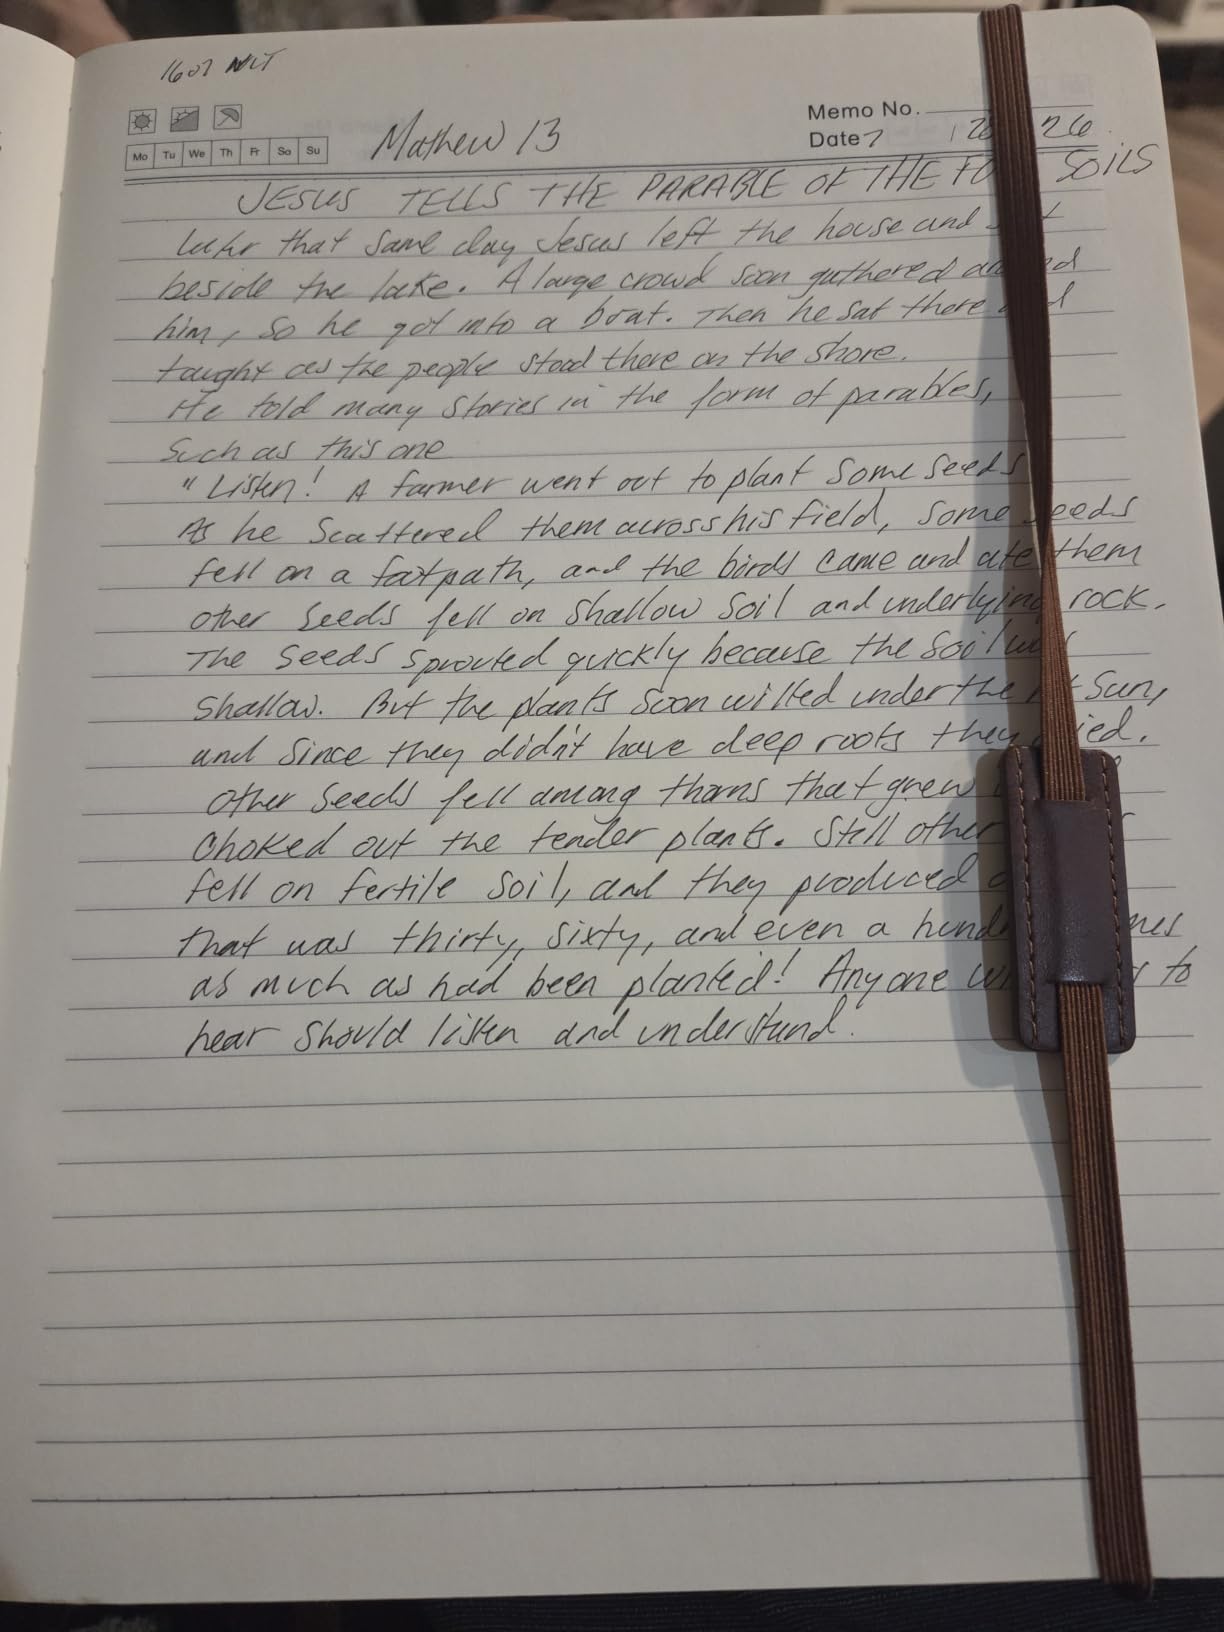 1607 NLT
Mathew 13
Memo No.
Date 7 / 26 26
Mo Tu We Th Fr Sa Su
JESUS TELLS THE PARABLE OF THE FO SOILS
later that same day Jesus left the house and
beside the lake. A large crowd soon gathered around
him, so he got into a boat. Then he sat there
taught as the people stood there on the shore.
He told many stories in the form of parables,
Such as this one
"Listen! A farmer went out to plant some seeds
As he scattered them across his field, some seeds
fell on a footpath, and the birds came and ate them
other seeds fell on shallow soil and underlying rock.
The seeds sprouted quickly because the soil
shallow. But the plants soon wilted under the sun,
and since they didn't have deep roots they died.
Other seeds fell among thorns that grew
choked out the tender plants. Still other
fell on fertile soil, and they produced
that was thirty, sixty, and even a
as much as had been planted! Anyone to
hear should listen and understand.